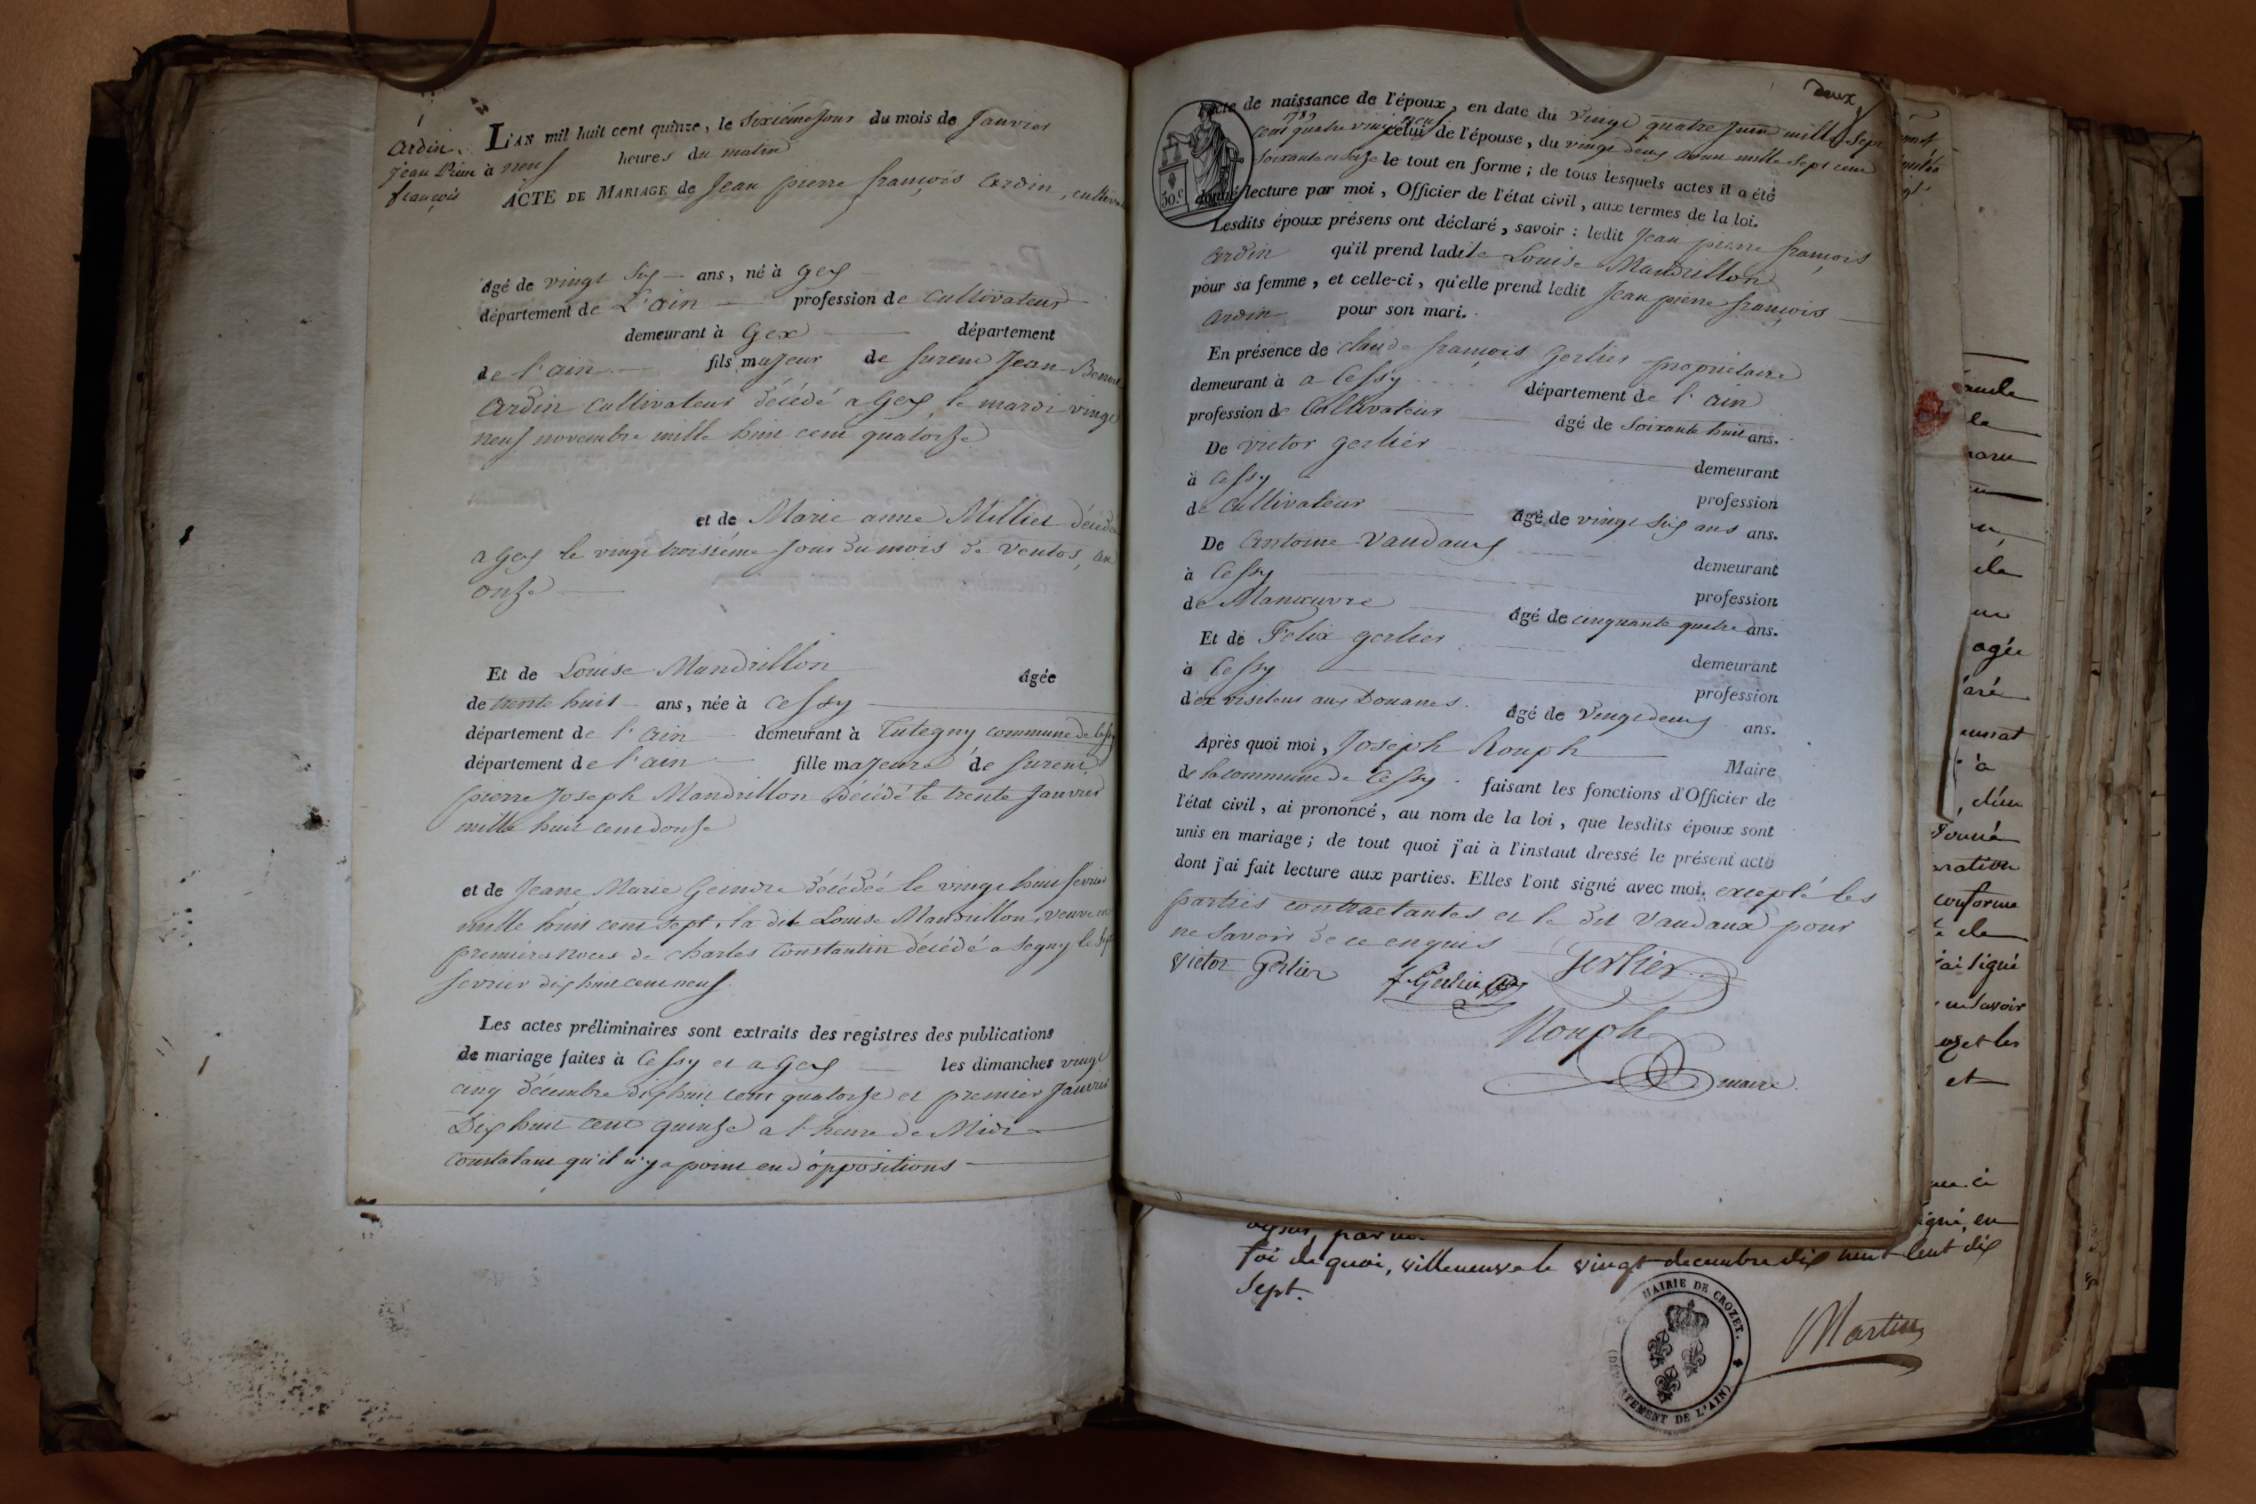 Ardin
Jean Pierre
françois
L'AN mil huit cent quinze, le sixième jour du mois de Janvier
à neuf heures du matin
ACTE DE MARIAGE de Jean pierre françois Ardin, cultiva
âgé de vingt six ans, né à Gex
département de L'ain profession de cultivateur
demeurant à Gex département
de l'ain fils majeur de furent Jean
Ardin cultivateur décédé a Gex, le mardi vingt
neuf novembre mille huit cent quatorze
et de Marie anne Milliet
a Gex le vingt troisiéme jour du mois de ventos, an
onze
Et de Louise Mandrillon âgée
de trente huit ans, née à Cessy
département de l'ain demeurant à Tutegny commune de Cessy
département de l'ain fille majeure de furent
pierre Joseph Mandrillon décédé le trente Janvier
mille huit cent douze
et de Jeane Marie Geindre décédée le vingt huit fevrier
mille huit cent sept, la dite Louise Mandrillon, veuve en
premieres noces de charles Constantin décédé a Segny le
fevrier dix huit cent neuf.
Les actes préliminaires sont extraits des registres des publications
de mariage faites à Cessy et a Gex les dimanches vingt
cinq décembre dix huit cent quatorze et premier Janvier
Dix huit cent quinze a l'heure de Midi
constatant qu'il n'y a point eu d'oppositions
deux
30.c
acte de naissance de l'époux, en date du vingt quatre Juin mille sept
1789
cent quatre vingt neuf celui de l'épouse, du vingt deux aoust mille sept cent
soixante et seize le tout en forme; de tous lesquels actes il a été
donné lecture par moi, Officier de l'état civil, aux termes de la loi.
Lesdits époux présens ont déclaré, savoir: ledit Jean pierre françois
Ardin qu'il prend ladite Louise Mandrillon
pour sa femme, et celle-ci, qu'elle prend ledit Jean pierre françois
Ardin pour son mari.
En présence de claude françois Gerlier propriétaire
demeurant à a Cessy département de l'ain
profession de Cultivateur âgé de soixante huit ans.
De victor gerlier demeurant
à Cessy profession
de Cultivateur âgé de vingt six ans ans.
De Antoine Vaudaux demeurant
à Cessy profession
de Manœuvre âgé de cinquante quatre ans.
Et de Felix gerlier demeurant
à Cessy profession
d'ex visiteur aux Douanes. âgé de vingt deux ans.
Après quoi moi, Joseph Rouph Maire
de la commune de Cessy faisant les fonctions d'Officier de
l'état civil, ai prononcé, au nom de la loi, que lesdits époux sont
unis en mariage; de tout quoi j'ai à l'instant dressé le présent acte
dont j'ai fait lecture aux parties. Elles l'ont signé avec moi, excepté les
parties contractantes et le dit Vaudaux pour
ne savoir de ce enquis
victor Gerlier f. Gerlier Gerlier
Rouph
maire
foi de quoi, villeneuve le vingt decembre dix huit cent dix
sept.
MAIRIE DE CROZET.
(DÉPARTEMENT DE L'AIN)
Martin
la
de
agée
à
ration
conforme
de
ai signé
savoir
et les
et
signé, en